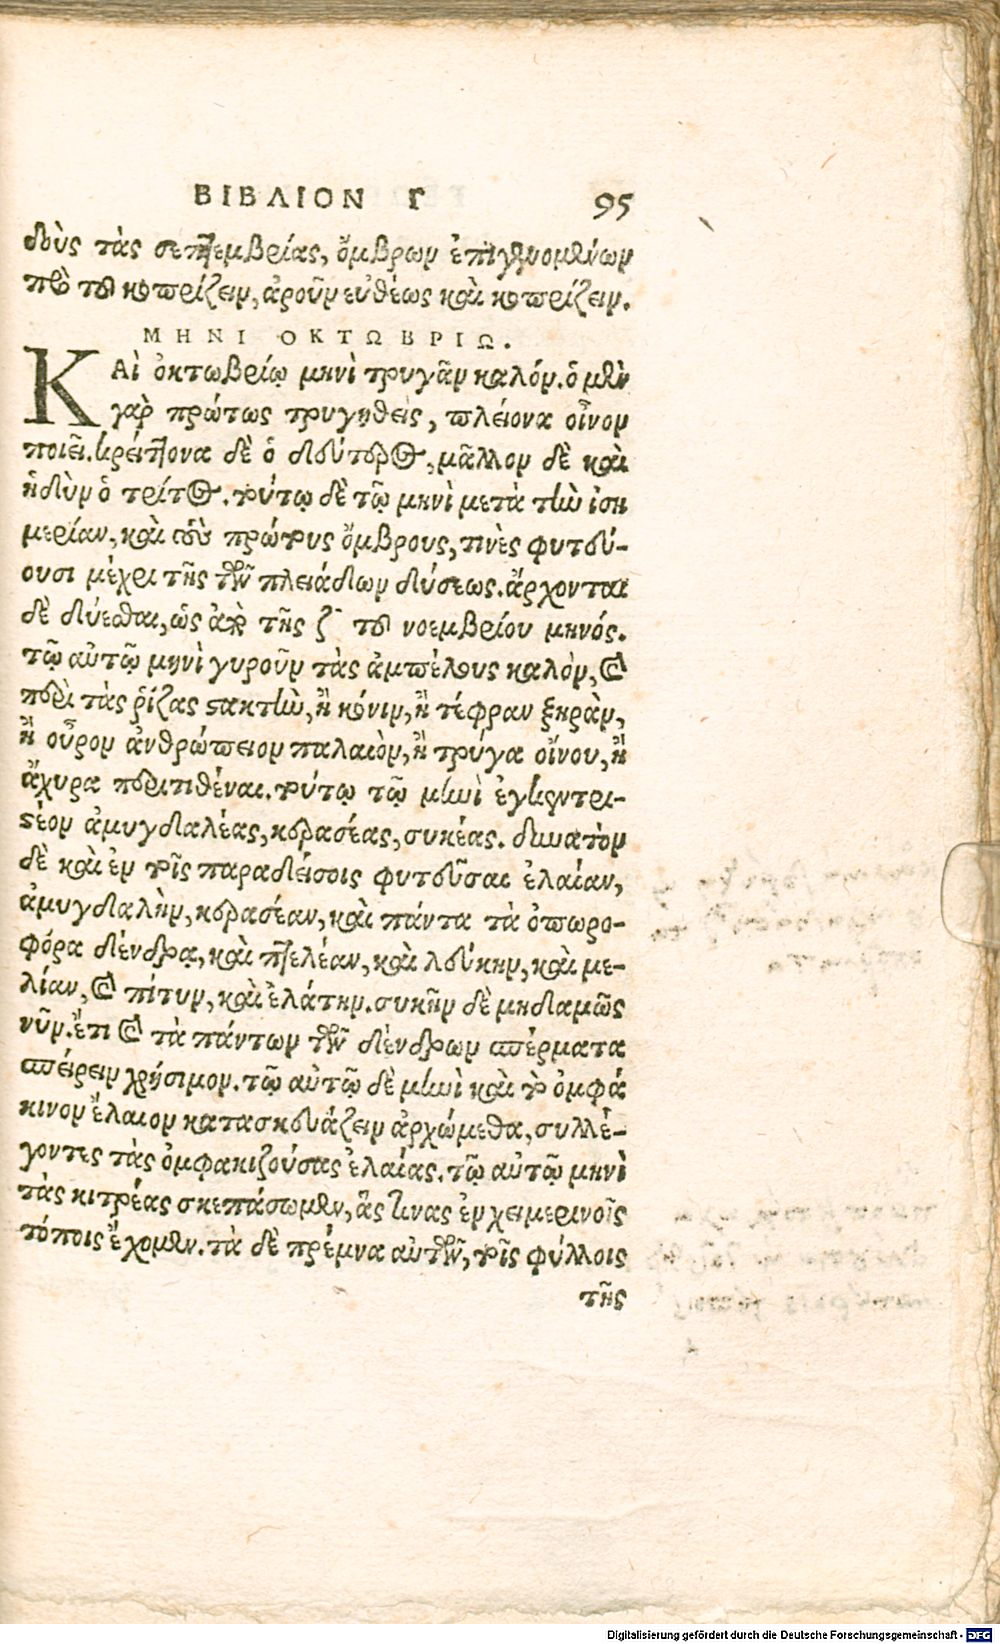 ΒΙΒΛΙΟΝ Γ 95
δοὺς τὰς σεπτεμβρίας, ὄμβρων ἐπιγενομένων
πρὸ τοῦ κοπρίζειν, ἀροῦν εὐθέως καὶ κοπρίζειν.
ΜΗΝΙ ΟΚΤΩΒΡΙΩ.
ΚΑὶ ὀκτωβρίῳ μηνὶ τρυγᾶν καλόν. ὁ μὲν
γὰρ πρώτως τρυγηθεὶς, πλείονα οἶνον
ποιεῖ. κρείττονα δὲ ὁ δεύτερος, μᾶλλον δὲ καὶ
ἡδὺν ὁ τρίτος. τούτῳ δὲ τῷ μηνὶ μετὰ τὴν ἰση
μερίαν, καὶ τοὺς πρώτους ὄμβρους, τινὲς φυτεύ-
ουσι μέχρι τῆς τῶν πλειάδων δύσεως. ἄρχονται
δὲ δύεσθαι, ὡς ἀπὸ τῆς ζ τοῦ νοεμβρίου μηνός.
τῷ αὐτῷ μηνὶ γυροῦν τὰς ἀμπέλους καλὸν, καὶ
περὶ τὰς ῥίζας στακτὴν, ἢ κόνιν, ἢ τέφραν ξηρὰν,
ἢ οὖρον ἀνθρώπειον παλαιὸν, ἢ τρύγα οἴνου, ἢ
ἄχυρα περιτιθέναι. τούτῳ τῷ μηνὶ ἐγκεντρι-
στέον ἀμυγδαλέας, κερασέας, συκέας. δυνατὸν
δὲ καὶ ἐν τοῖς παραδείσοις φυτεῦσαι ἐλαίαν,
ἀμυγδαλὴν, κερασέαν, καὶ πάντα τὰ ὀπωρο-
φόρα δένδρα, καὶ πτελέαν, καὶ λεύκην, καὶ με-
λίαν, καὶ πίτυν, καὶ ἐλάτην. συκῆν δὲ μηδαμῶς
νῦν. ἔτι καὶ τὰ πάντων τῶν δένδρων σπέρματα
σπείρειν χρήσιμον. τῷ αὐτῷ δὲ μηνὶ καὶ τὸ ὀμφά
κινον ἔλαιον κατασκευάζειν ἀρχώμεθα, συλλέ-
γοντες τὰς ὀμφακιζούσας ἐλαίας. τῷ αὐτῷ μηνὶ
τὰς κιτρέας σκεπάσωμεν, ἃς τινας ἐν χειμερινοῖς
τόποις ἔχομεν. τὰ δὲ πρέμνα αὐτῶν, τοῖς φύλλοις
τῆς
Digitalisierung gefördert durch die Deutsche Forschungsgemeinschaft - DFG